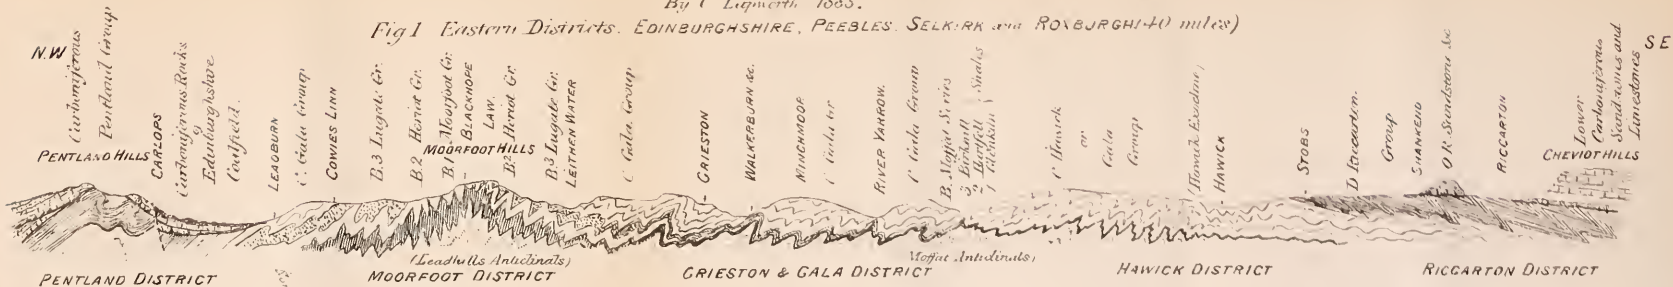 By C Lapworth 1883.
Fig 1 Eastern Districts. EDINBURGHSHIRE, PEEBLES. SELKIRK and ROXBURGH (40 miles)
N.W
S E
Carboniferous
Pentland Group
PENTLAND HILLS
CARLOPS
Carboniferous Rocks
of
Edinburghshire
Coalfield.
LEADBURN
C. Gala Group
COWIES LINN
B.3 Lugate Gr.
B.2 Heriot Gr.
B.1 Moorfoot Gr.
BLACKHOPE
LAW.
MOORFOOT HILLS
B.2 Heriot Gr.
B.3 Lugate Gr.
LEITHEN WATER
C Gala Group
GRIESTON
WALKERBURN &c.
MINCHMOOR
C Gala Gr
RIVER YARROW.
C Gala Group
B. Moffat Series
3 Birkhill
2 Hartfell
1 Glenkiln
Shales
C Hawick
or
Gala
Group
HAWICK
STOBS
D
Group
SHANKEND
O R Sandstone &c
RICCARTON
CHEVIOT HILLS
Lower
Carboniferous
Sandstones and
Limestones
(Leadhills Anticlinals)
Moffat Anticlinals,
PENTLAND DISTRICT
MOORFOOT DISTRICT
GRIESTON & GALA DISTRICT
HAWICK DISTRICT
RICCARTON DISTRICT